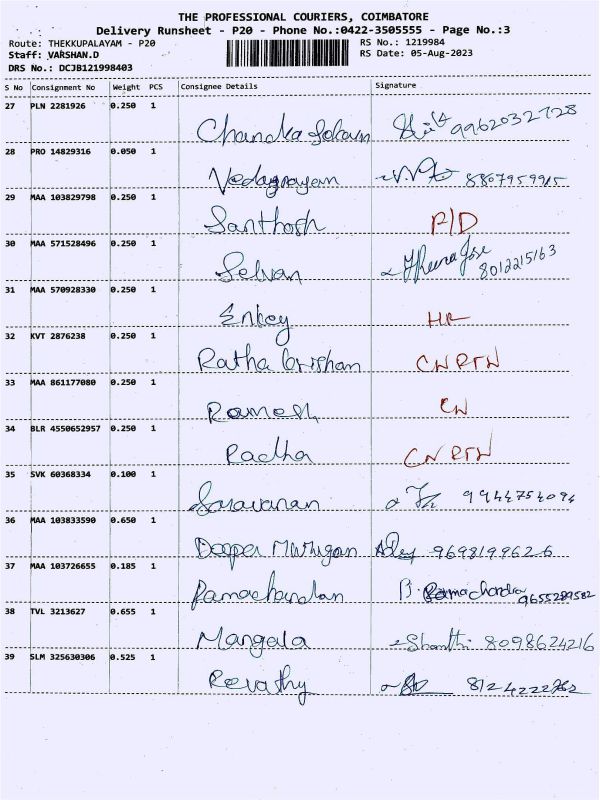 THE PROFESSIONAL COURIERS, COIMBATORE
Delivery Runsheet - P20 - Phone No.:0422-3505555 - Page No.:3
Route: THEKKUPALAYAM - P20 RS No.: 1219984
Staff: VARSHAN.D RS Date: 05-Aug-2023
DRS No.: DCJB121998403
S No Consignment No Weight PCS Consignee Details Signature
27 PLN 2281926 0.250 1
9962032728
28 PRO 14829316 0.050 1
29 MAA 103829798 0.250 1
Santhosh P/D
30 MAA 571528496 0.250 1
Selvan 8012215163
31 MAA 570928330 0.250 1
Enkey HR
32 KVT 2876238 0.250 1
Ratha Crishan CN RTN
33 MAA 861177080 0.250 1
Ramesh CN
34 BLR 4550652957 0.250 1
Radha CN RTN
35 SVK 60368334 0.100 1
Saravanan 9944754094
36 MAA 103833590 0.650 1
Murugan 9698199626
37 MAA 103726655 0.185 1
Ramachandan B. Ramachandra 9655289582
38 TVL 3213627 0.655 1
Mangala Shanthi 8098624216
39 SLM 325630306 0.525 1
Revathy